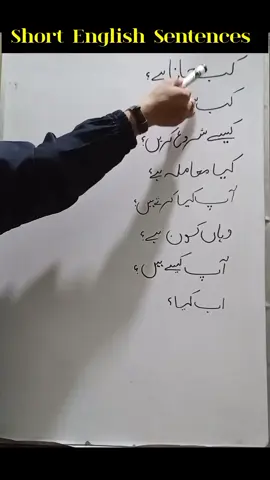 Short English Sentences
کب جانا ہے؟
کب
کیسے شروع کریں؟
کیا معاملہ ہے؟
آپ کیا کرتے ہیں؟
وہاں کون ہے؟
آپ کیسے ہیں؟
اب کیا؟